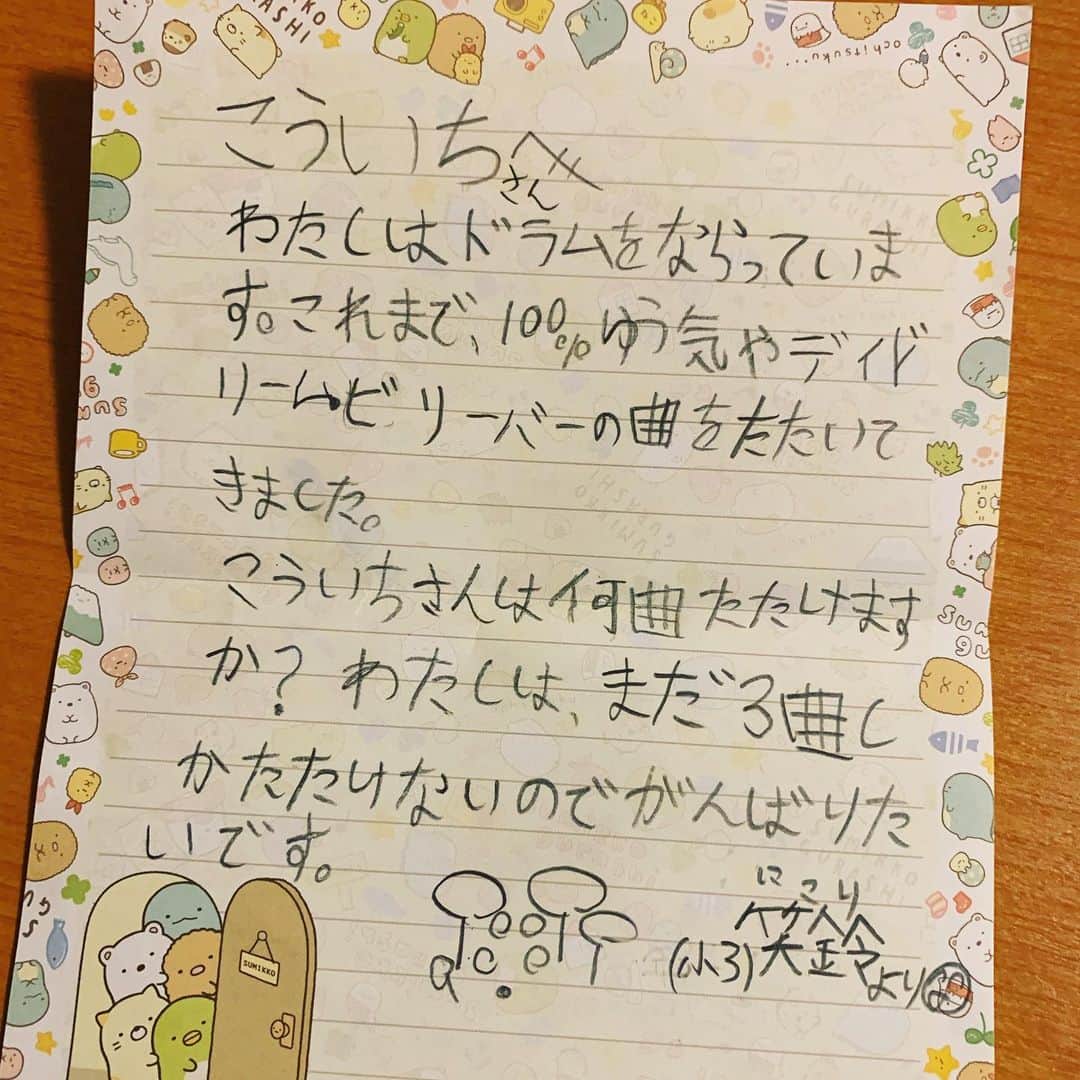 SUMIKKO
GURASHI
ochitsuku...
こういちさんへ
わたしはドラムをならっていま
す。これまで、100%ゆう気やデイド
リームビリーバーの曲をたたいて
きました。
こういちさんは何曲たたけます
か？わたしは、まだ3曲し
かたたけないのでがんばりた
いです。
にこり
(小3)笑鈴より
SUMIKKO